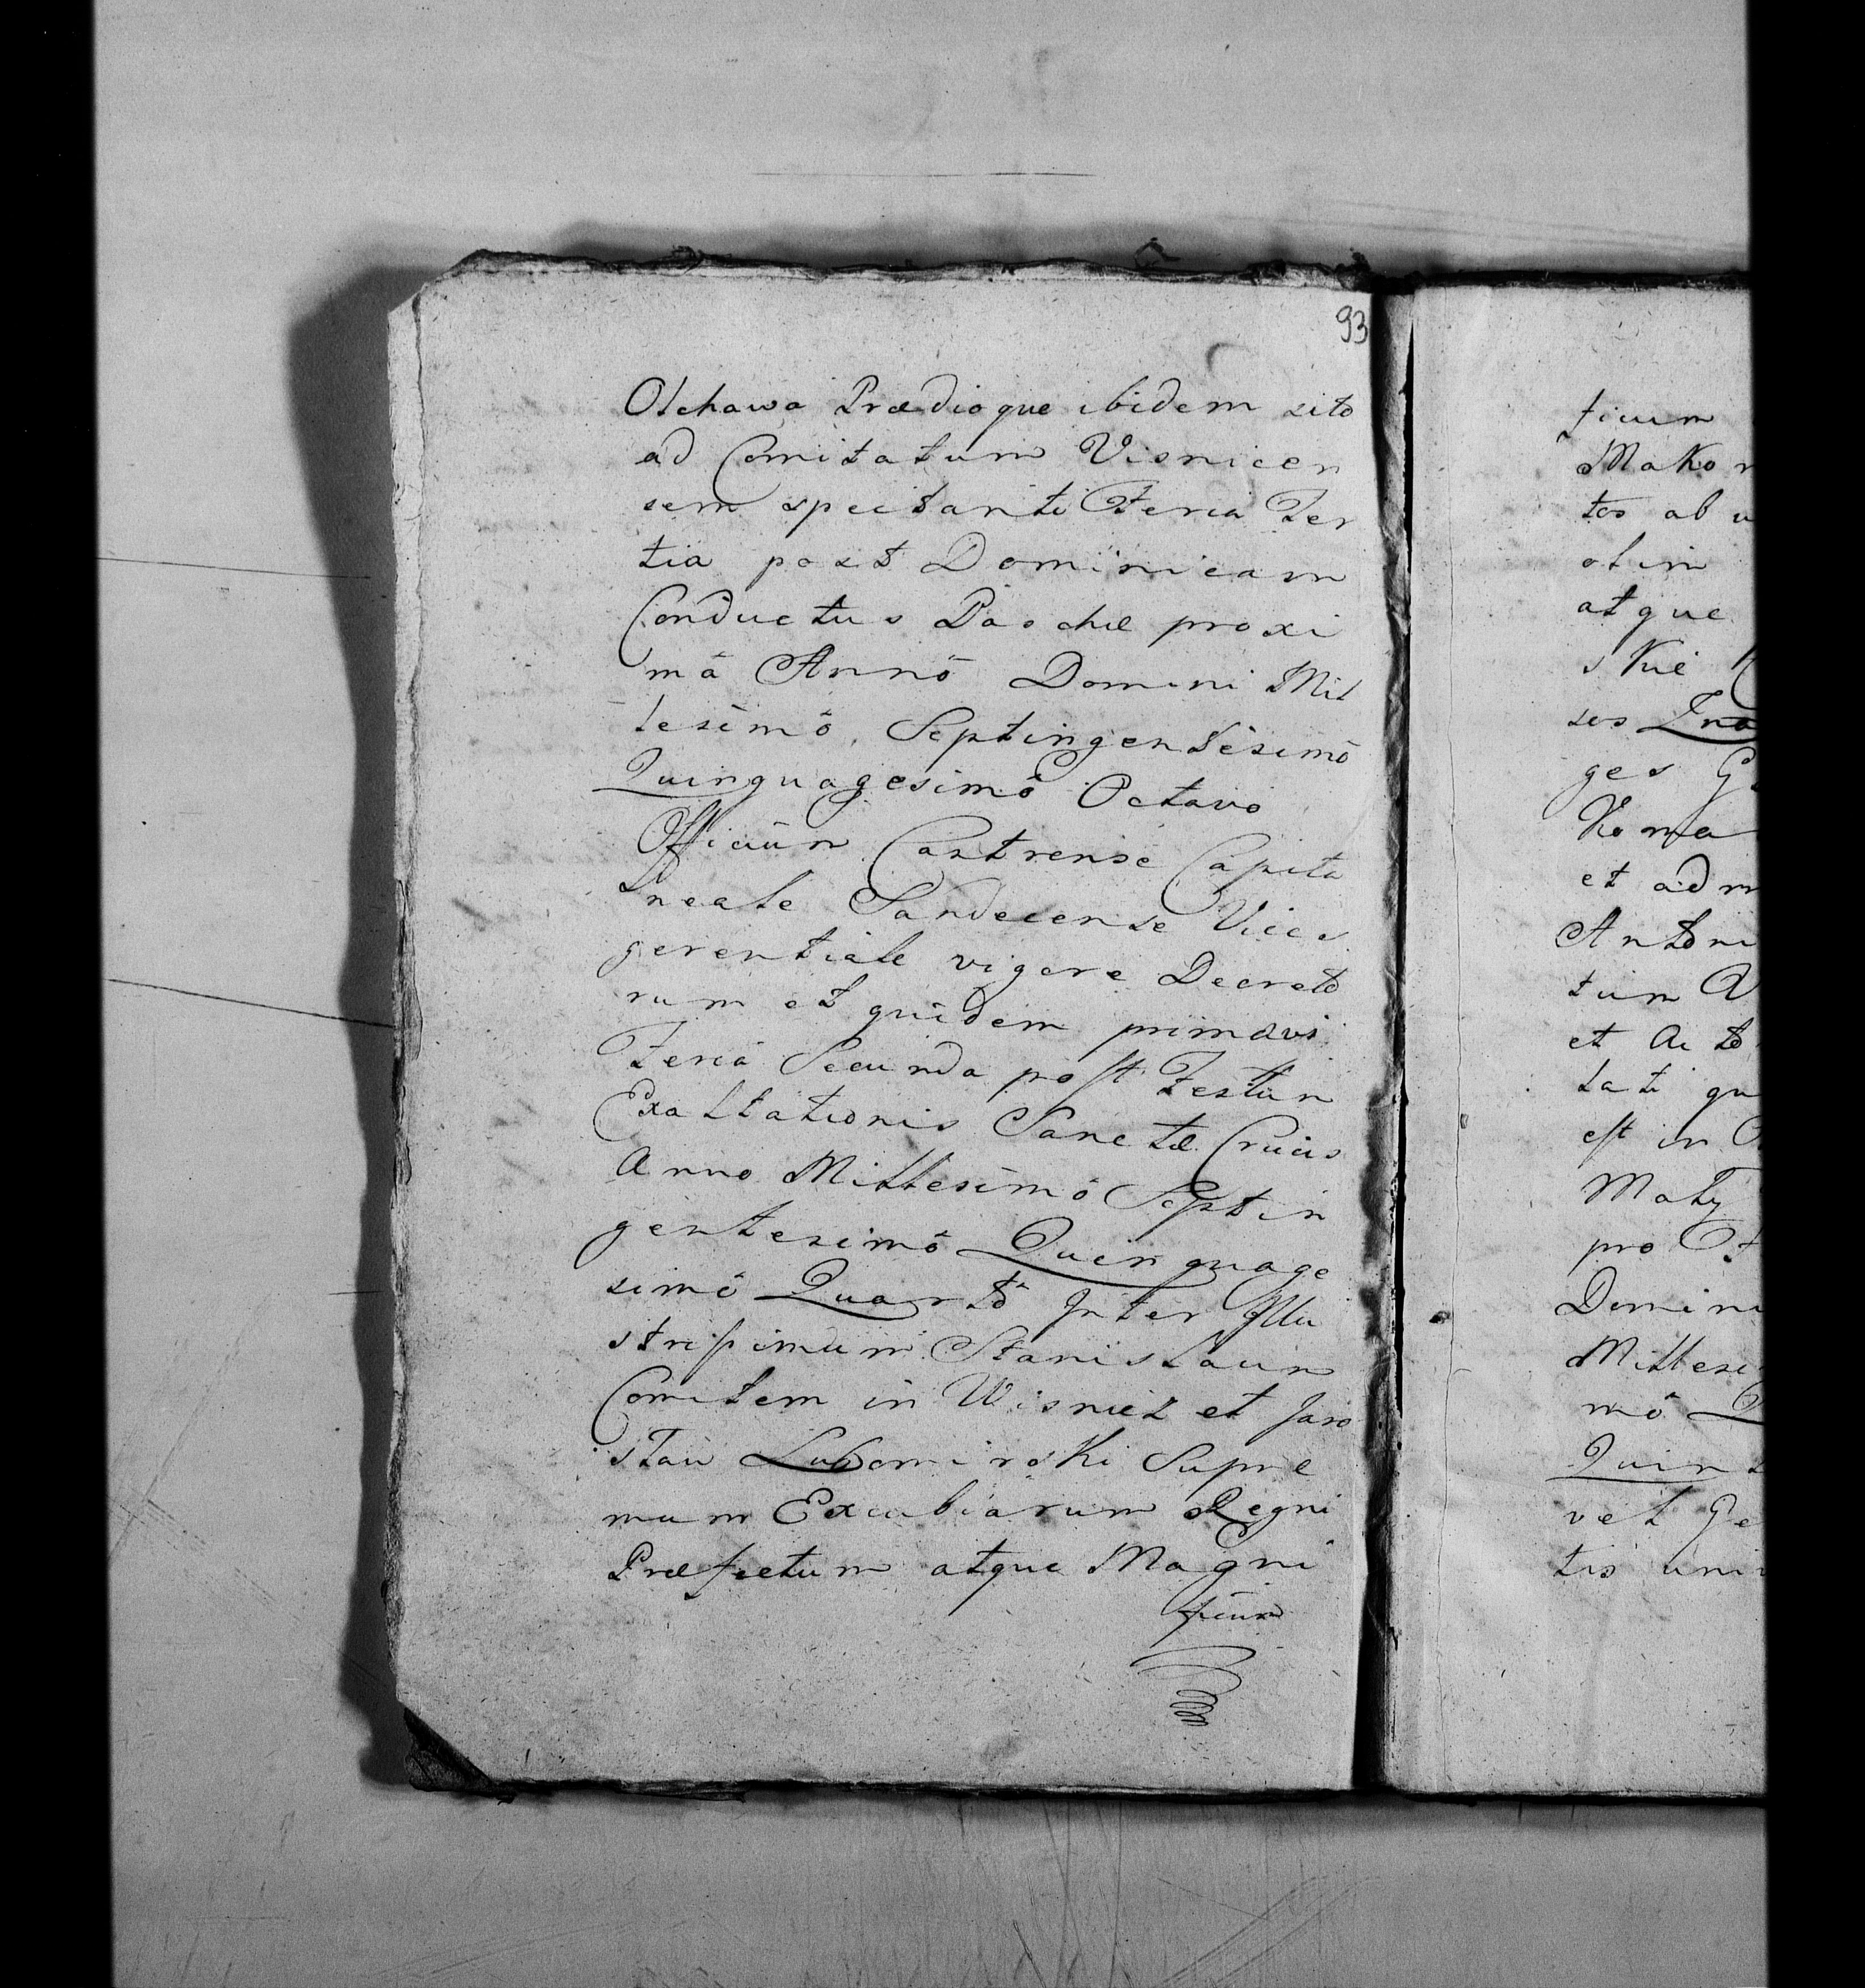 93
Olchawa Prædioque ibidem sito
ad Comitatum Visnicen
sem spectanti Feria Ter
tia post Dominicam
Conductus Paschæ proxi
mâ Annô Domini Mil
lesimô Septingentesimô
Quinquagesimô Octavo
Officiũn Castrense Capita
neale Sandecense Vices
gerentiale vigore Decreto
rum et quidem primævi
Feriâ Secunda post Festũn
Exaltationis Sanctæ Crucis
Anno Millesimô Septin
gentesimô Quinquage
simô Quartô Inter Illu
strissimum Stanislaum
Comitem in Wisnicz et Jaro
slau Lubomirski Supre
mum Excubiarum Regni
Præfectum atque Magni
ficum
ficum
Makor
tos ab u
olim
atque
skie
ses
ges
Roma
et adm
Antoni
tum
et Acto
tati qu
est in
Maty
pro
Domini
Millesi
mô
Quint
vel Ge
tis uni